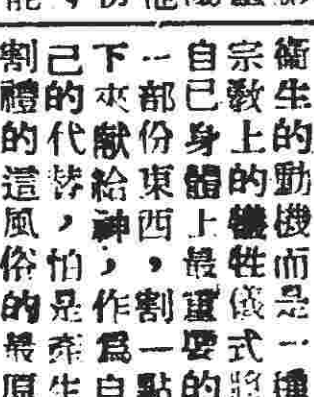 衞生的動機而是一種
宗教上的犧牲儀式將
自己身體上最重要的
一部份東西，割一點
下來献給神，作爲自
己的代替，怕是生
割禮的這風俗的最原